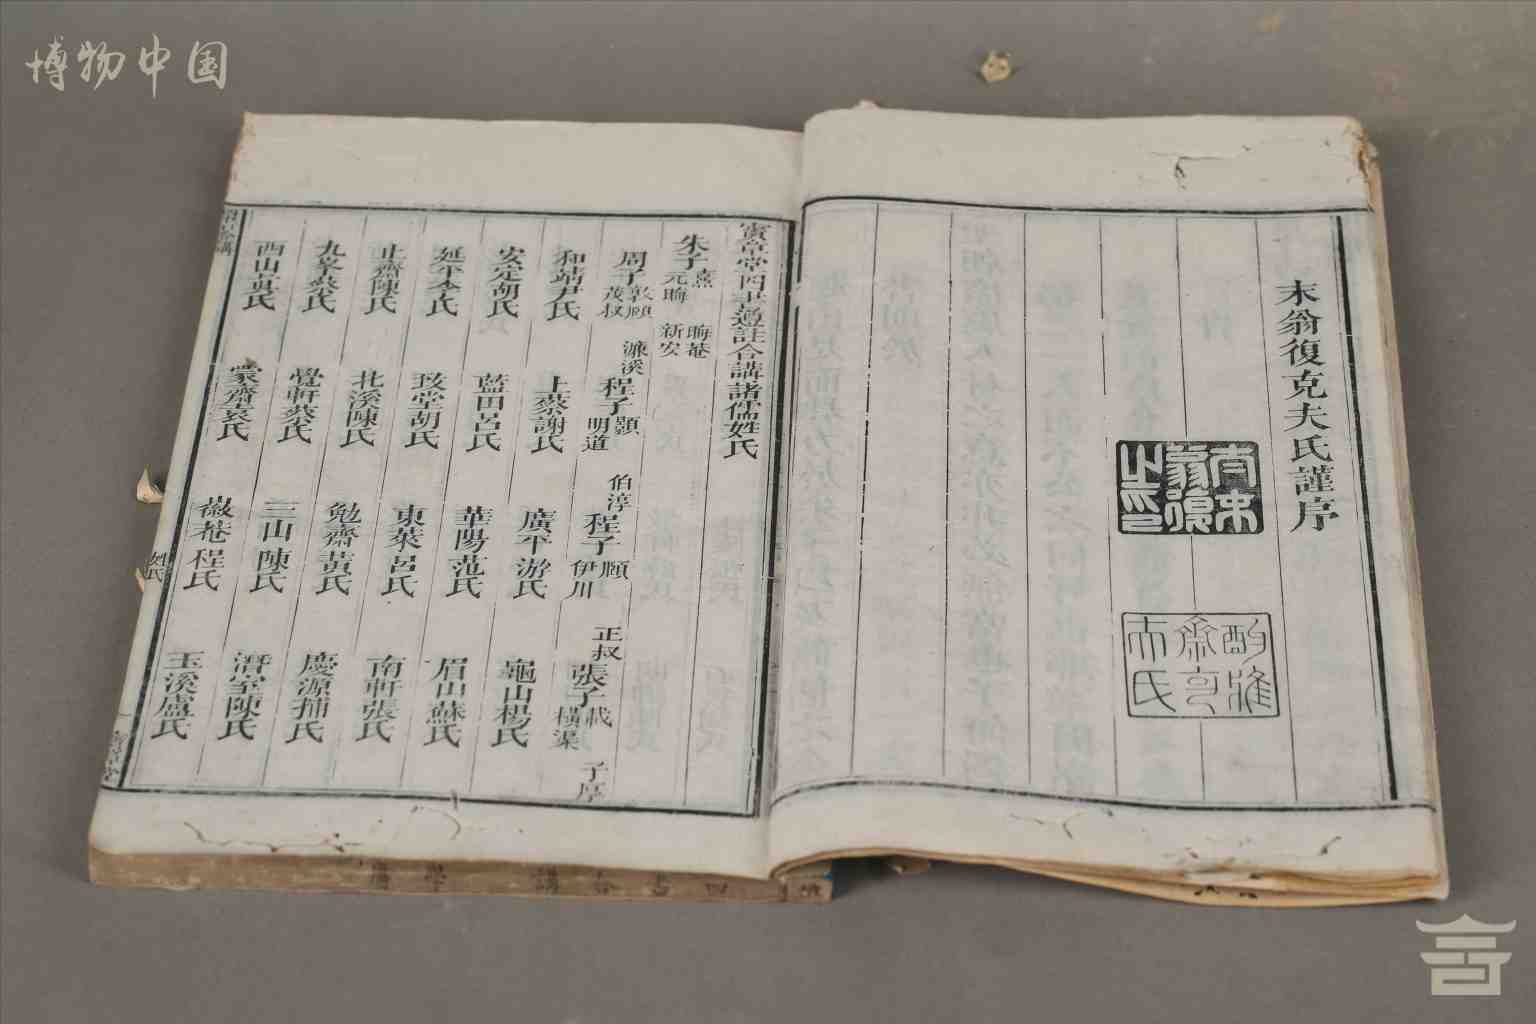 博物中国
末翁復克夫氏謹序
太末翁復之印
酌雅齋克夫氏
章堂四書遵註合講諸儒姓氏
朱子 熹 元晦 晦菴 新安
周子 敦頤 茂叔 濂溪 程子 顥 明道 伯淳 程子 頤 伊川 正叔 張子 載 橫渠 子厚
和靖尹氏 上蔡謝氏 廣平游氏 龜山楊氏
安定胡氏 藍田呂氏 華陽范氏 眉山蘇氏
延平李氏 致堂胡氏 東萊呂氏 南軒張氏
止齋陳氏 北溪陳氏 勉齋黃氏 慶源輔氏
九峯蔡氏 覺軒蔡氏 三山陳氏 潛室陳氏
西山眞氏 蒙齋袁氏 徽菴程氏 玉溪盧氏
姓氏